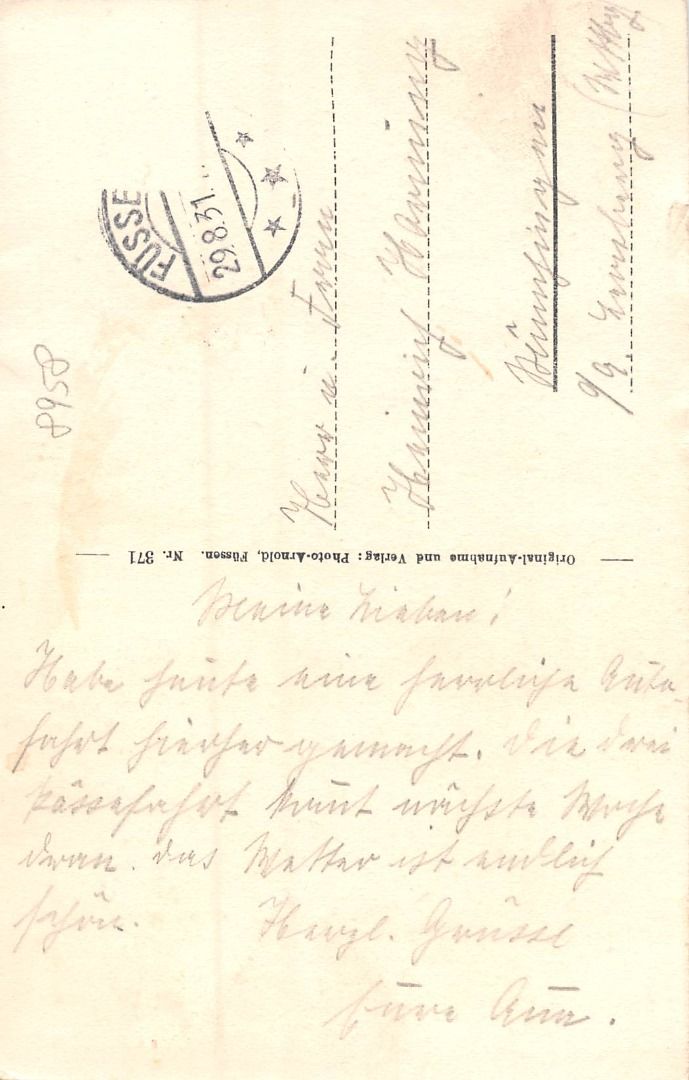 Meine Lieben!
Habe heute eine herrliche Auto-
fahrt hierher gemacht. Die drei
Pässefahrt kommt nächste Woche
dran. Das Wetter ist endlich
schön. Herzl. Grüsse
Eure Anna.
Original-Aufnahme und Verlag: Photo-Arnold, Füssen. Nr. 371
Herr u. Frau
Heinrich Henning
FÜSSE
29.8.31.
8958